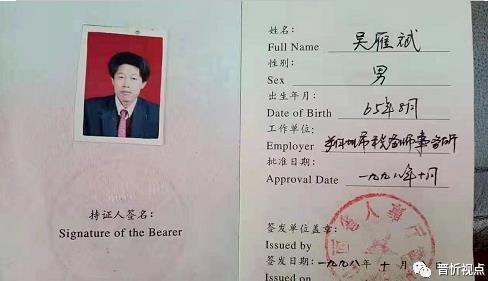 持证人签名：
Signature of the Bearer
姓名：
Full Name 吴雁斌
性别：
Sex 男
出生年月：
Date of Birth 65年8月
工作单位：
Employer 税务师事务所
批准日期：
Approval Date 一九九八年十月
签发单位盖章：
Issued by
签发日期：一九九八年 十 月
Issued on
晋忻视点